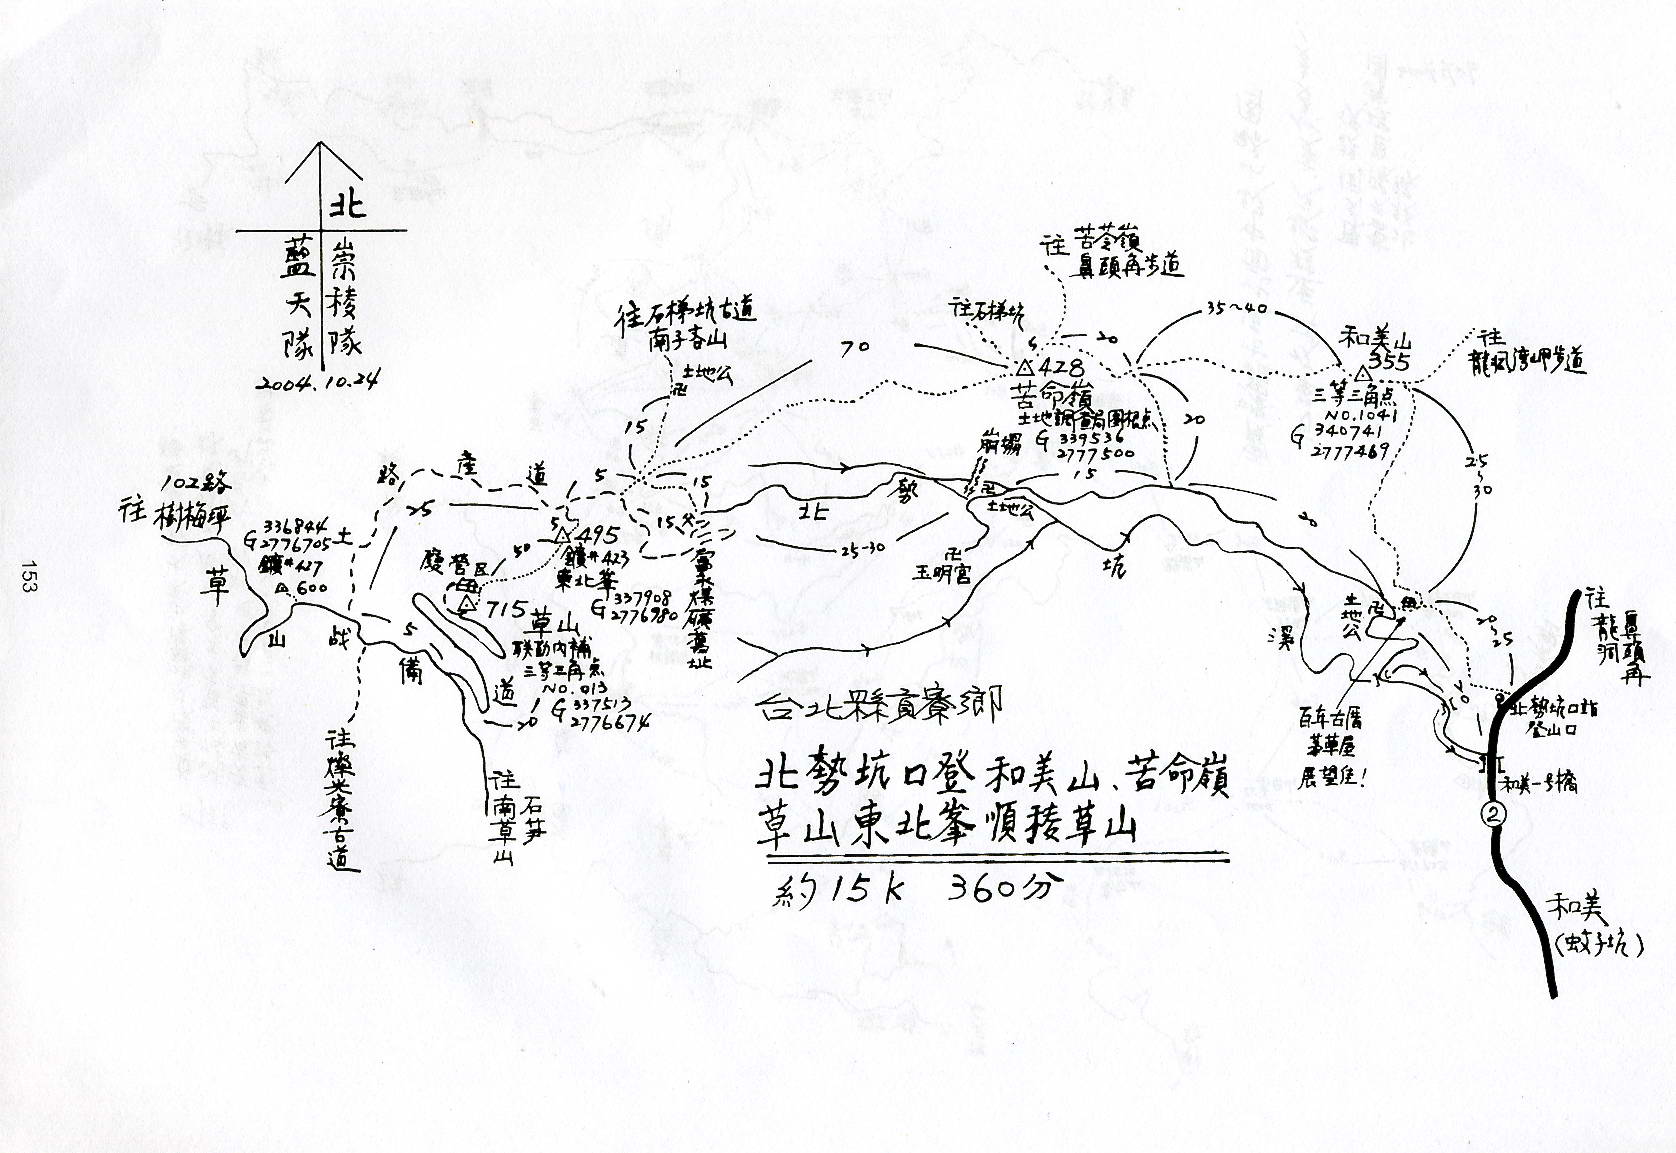 北
藍天隊
崇稜隊
2004.10.24
往 苦苓嶺
鼻頭角步道
往石梯坑
往石梯坑古道
南子吝山
土地公
35~40
20
70
5
428
苦命嶺
土地調查局圖根点
G 339536
2777500
和美山
355
三等三角点
NO.1041
G 340741
2777469
往
龍洞灣岬步道
崩塌
15
20
25~30
15
5
15
15
產道路
25
土
102路
往 樹梅坪
336844
G 2776705
鑛#427
600
廢營區
50
5
495
鑛#423
東北峯
G 337908
2776980
富禾煤礦舊址
715
草山
联勤內補
三等三角点
NO.013
G 337513
2776674
草山战備道
5
20
往燦光寮古道
往南草山
石笋
北勢坑溪
土地公
25-30
玉明宮
20
土地公
20~25
10
往龍洞
鼻頭角
北勢坑口站
登山口
百年古厝
茅草屋
展望佳!
和美一号橋
2
和美
(蚊子坑)
台北縣貢寮鄉
北勢坑口登和美山、苦命嶺
草山東北峯順稜草山
約15K 360分
153